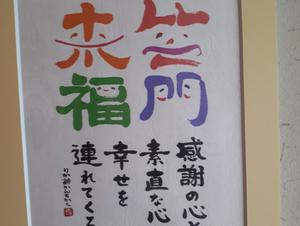 笑門
来福
感謝の心と
素直な心
幸せを
連れてくる